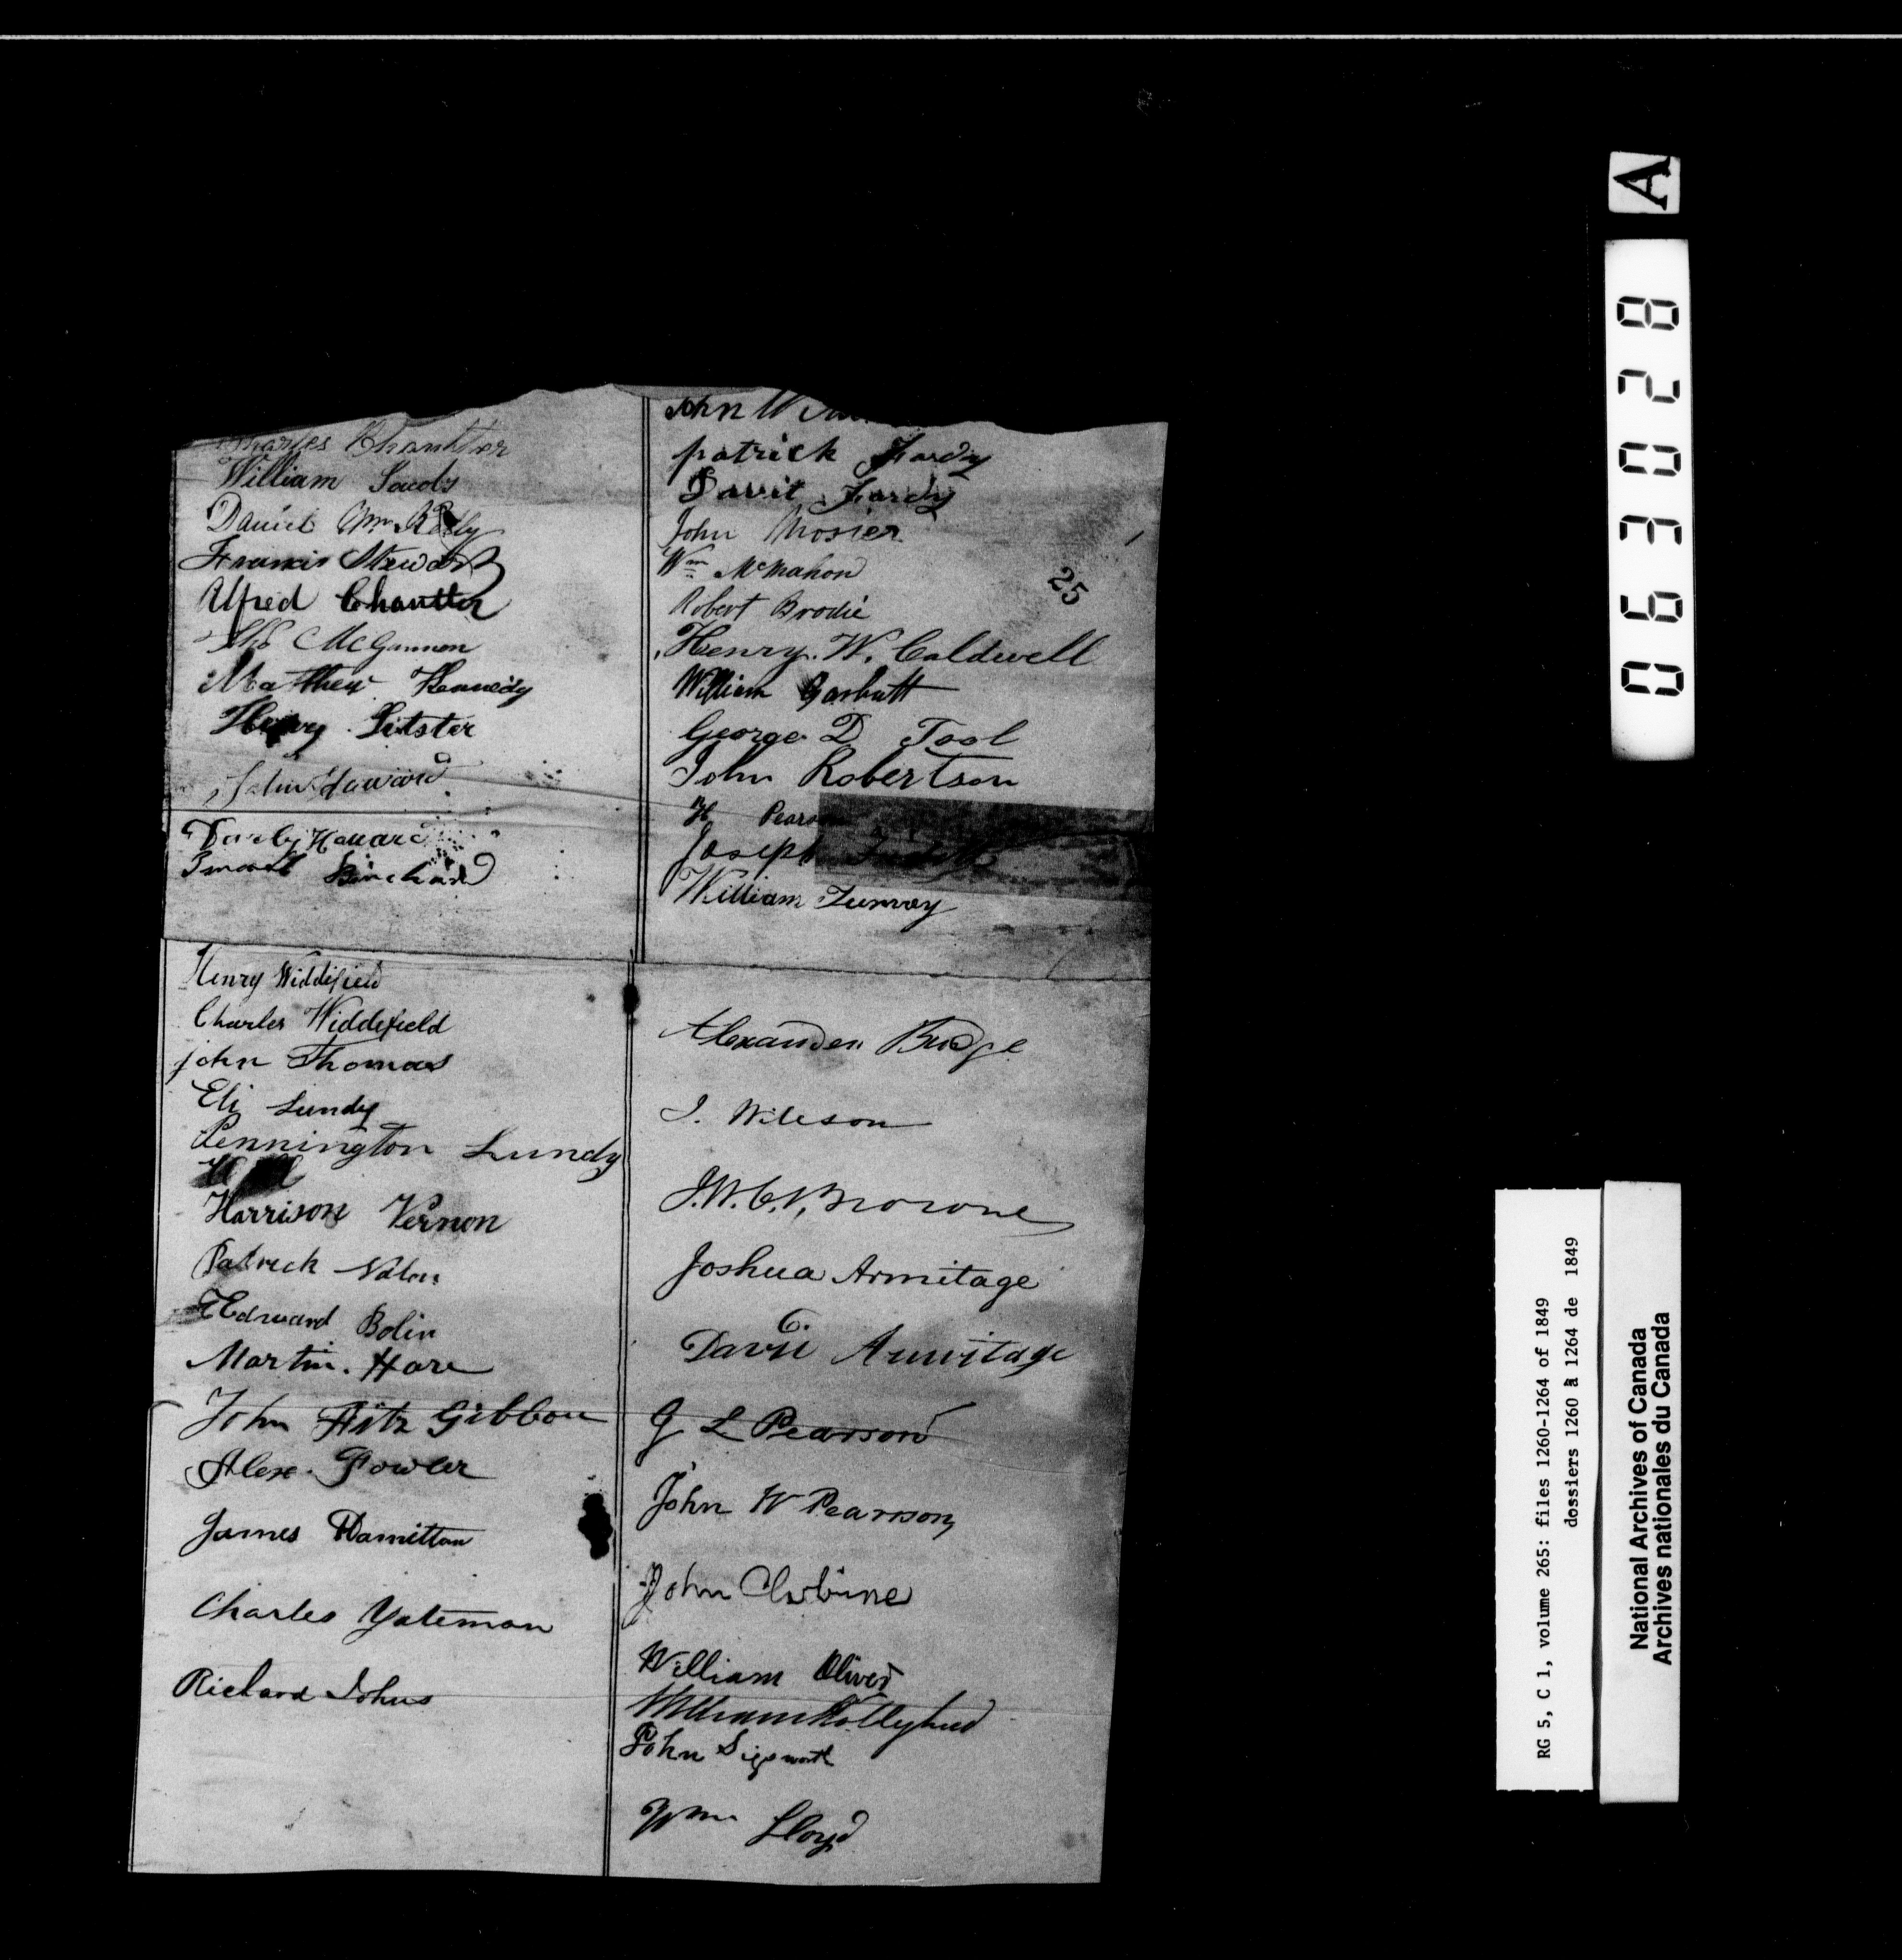 Charles Chantler
William Jacobs
Daniel Wm Reilly
Francis Stewart
Alfred Chantler
McGannon
Matthew Kennedy
Henry Litster
John Haward
Darby Haward
Henry Widdifield
Charles Widdifield
john Thomas
Eli Lundy
Pennington Lundy
Harrison Vernon
Patrick Nolan
Edward Bolin
Martin. Hare
John Fitz Gibbon
Alex. Fowler
James Hamilton
Charles Yateman
Richard Johns
John W
patrick Fardy
Davit Fardy
John Mosier
Wm McMahon
Robert Brodie
25
Henry. W. Caldwell
William Garbutt
George D Tool
John Robertson
H Pearson
Joseph
William Turney
Alexander Budge
J. Wileson
J.W.C. Browne
Joshua Armitage
C.
David Armitage
G L Pearson
John W Pearson
John Clubine
William Oliver
William Hollyhed
John Sigsworth
Wm Lloyd
A
063028
RG 5, C 1, volume 265: files 1260-1264 of 1849
dossiers 1260 à 1264 de 1849
National Archives of Canada
Archives nationales du Canada